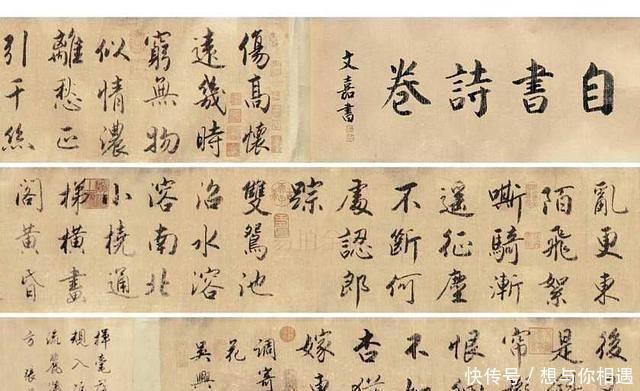 自書詩卷
文嘉書
傷高懷
遠幾時
窮無物
似情濃
離愁正
引千絲
亂更東
陌飛絮
嘶騎漸
遥征塵
不斷何
處認郎
踪
雙鴛池
沼水溶
溶南北
小橈通
梯橫畫
閣黃昏
後
是
帘
恨
不
杏
嫁東
調寄
花
吳興
揮毫
相入
流麗
方張
快传号/想与你相遇